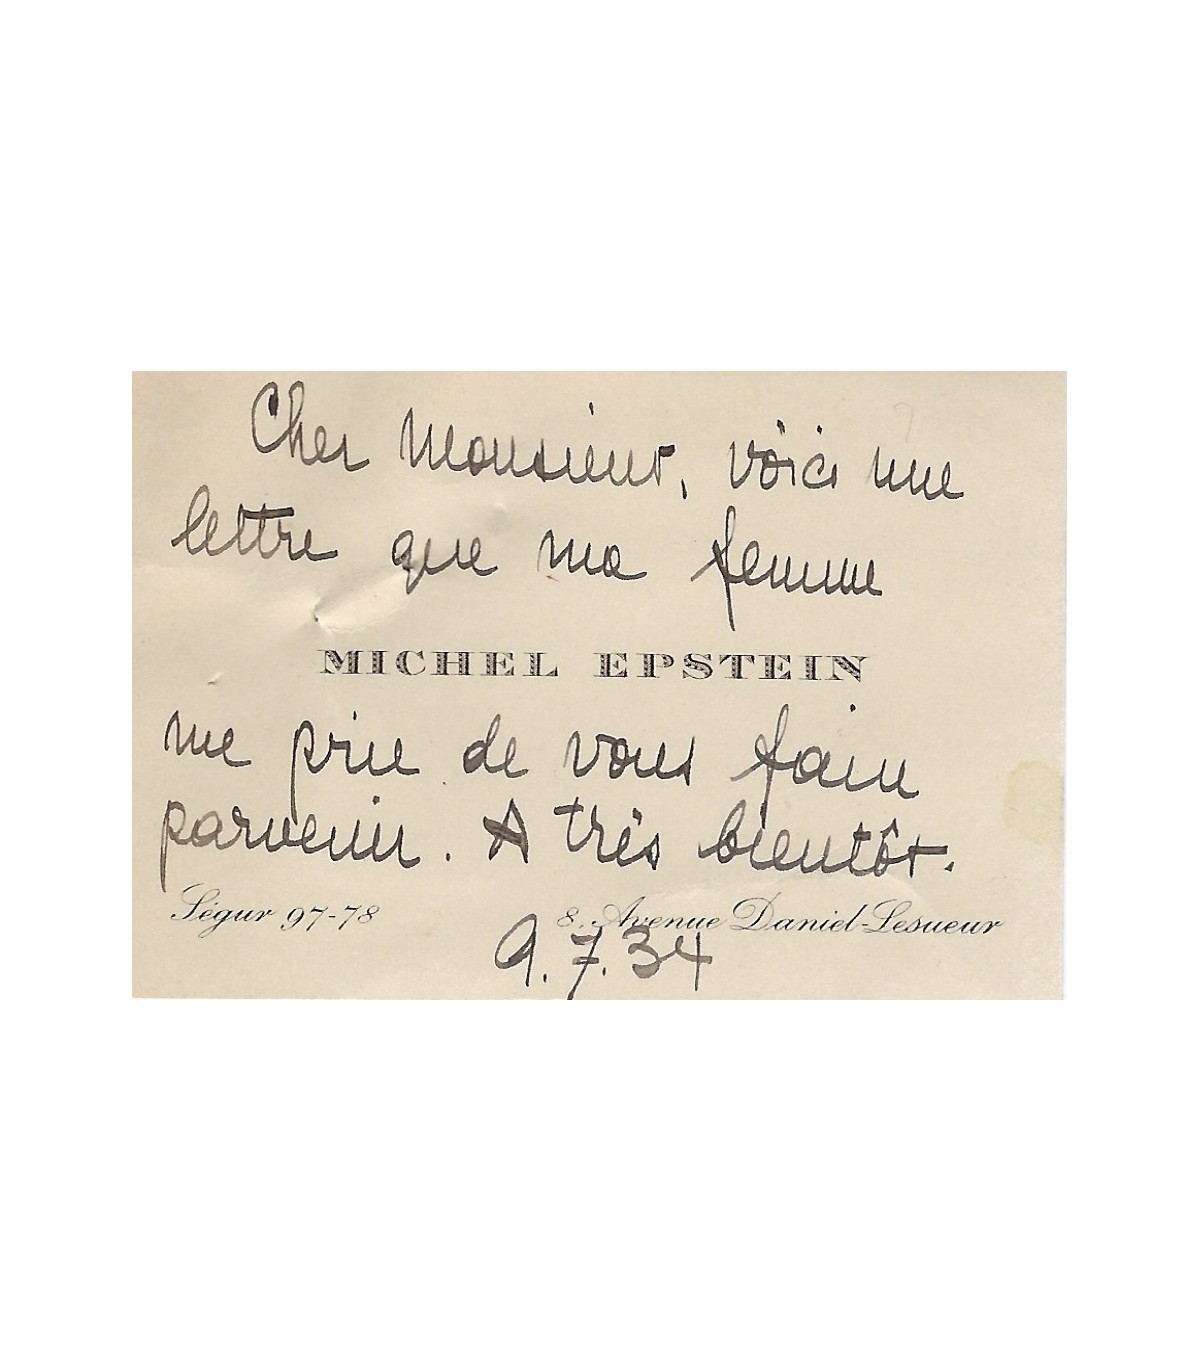 Cher Monsieur, voici une
lettre que ma femme
MICHEL EPSTEIN
me prie de vous faire
parvenir. A très bientôt.
Ségur 97-78
8. Avenue Daniel-Lesueur
9.7.34